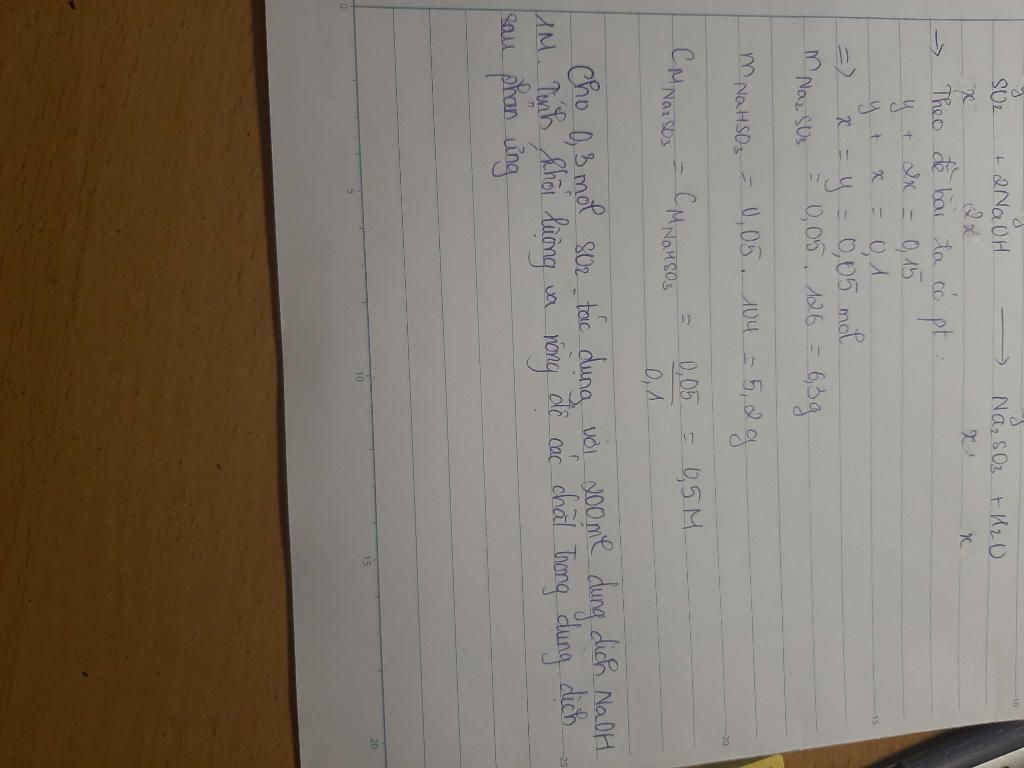 SO₂ + 2NaOH ⟶ Na₂SO₃ + H₂O
x 2x x x
→ Theo đề bài ta có pt:
y + 2x = 0,15
y + x = 0,1
=> x = y = 0,05 mol
mNa₂SO₃ = 0,05 . 126 = 6,3g
mNaHSO₃ = 0,05 . 104 = 5,2g
CMNa₂SO₃ = CMNaHSO₃ = 0,05/0,1 = 0,5M
Cho 0,3 mol SO₂ tác dụng với 200ml dung dịch NaOH
1M. Tính khối lượng và nồng độ các chất trong dung dịch
sau phản ứng
0 5 10 15 20
10
15
20
25